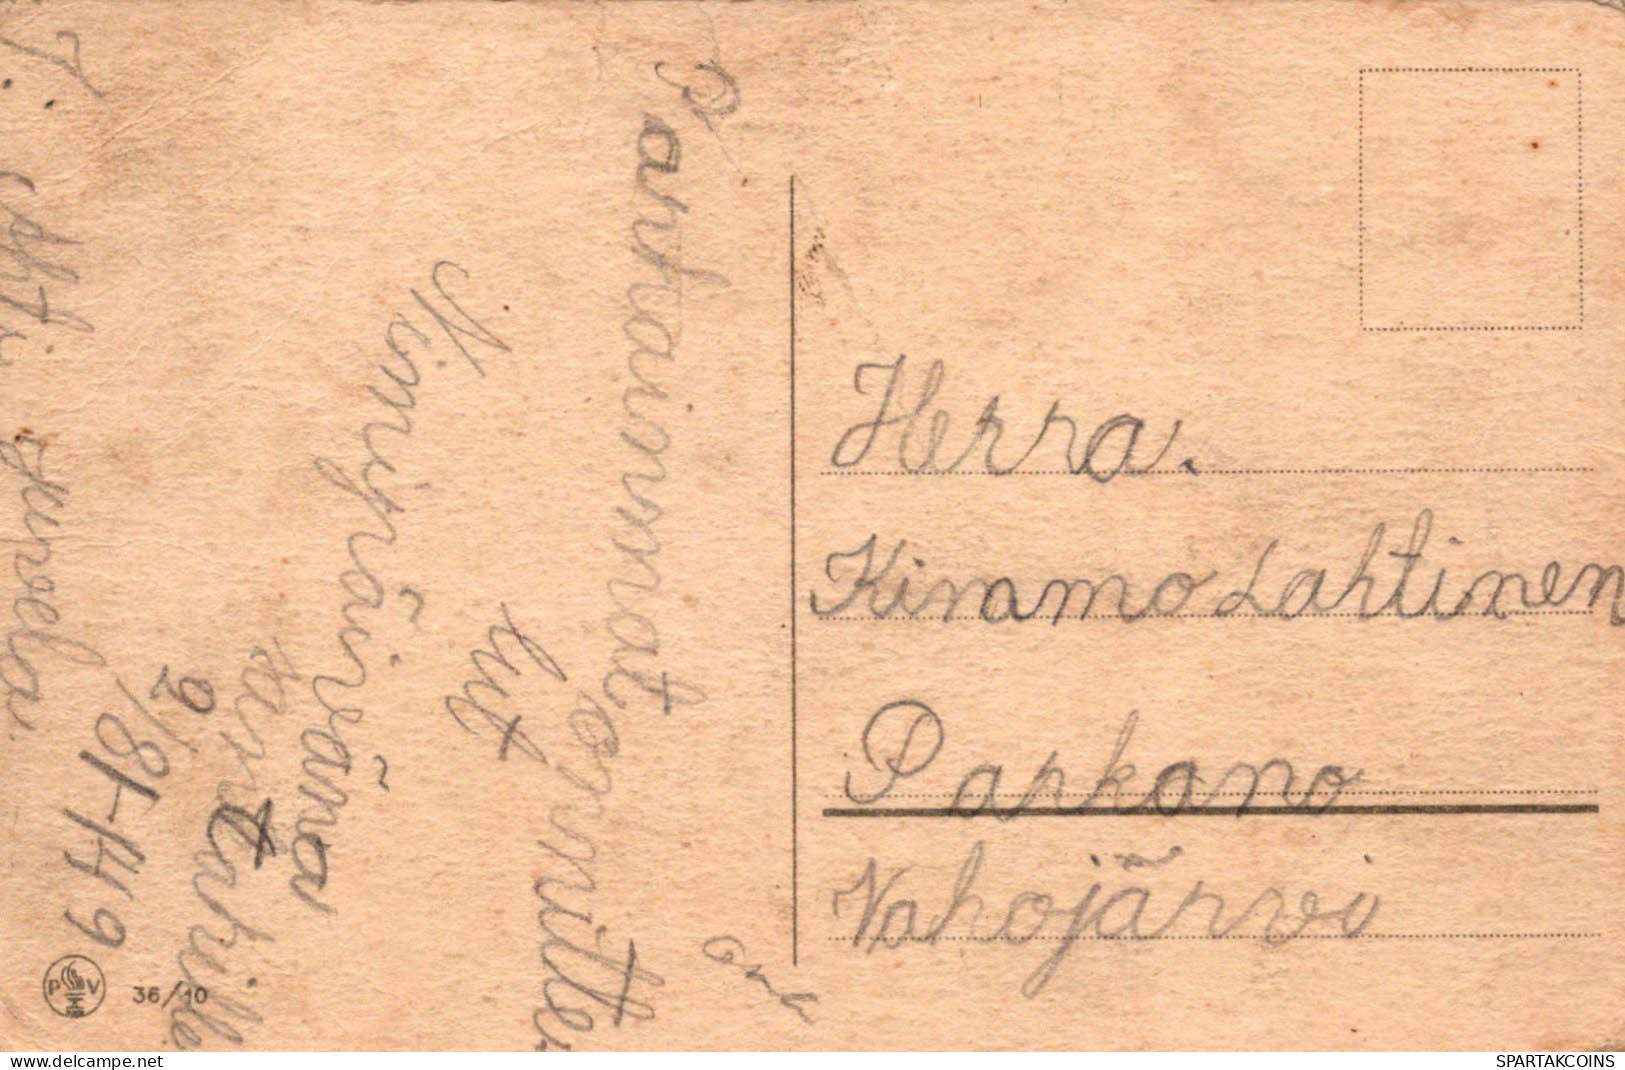 Parhaimmat onnittelut
Nimipäivänä
2/8-1949
T: Ahti
Herra.
Kimmo Lahtinen
Parkano
Vahojärvi
P V
36/10
delcampe.net
SPARTAKCOINS